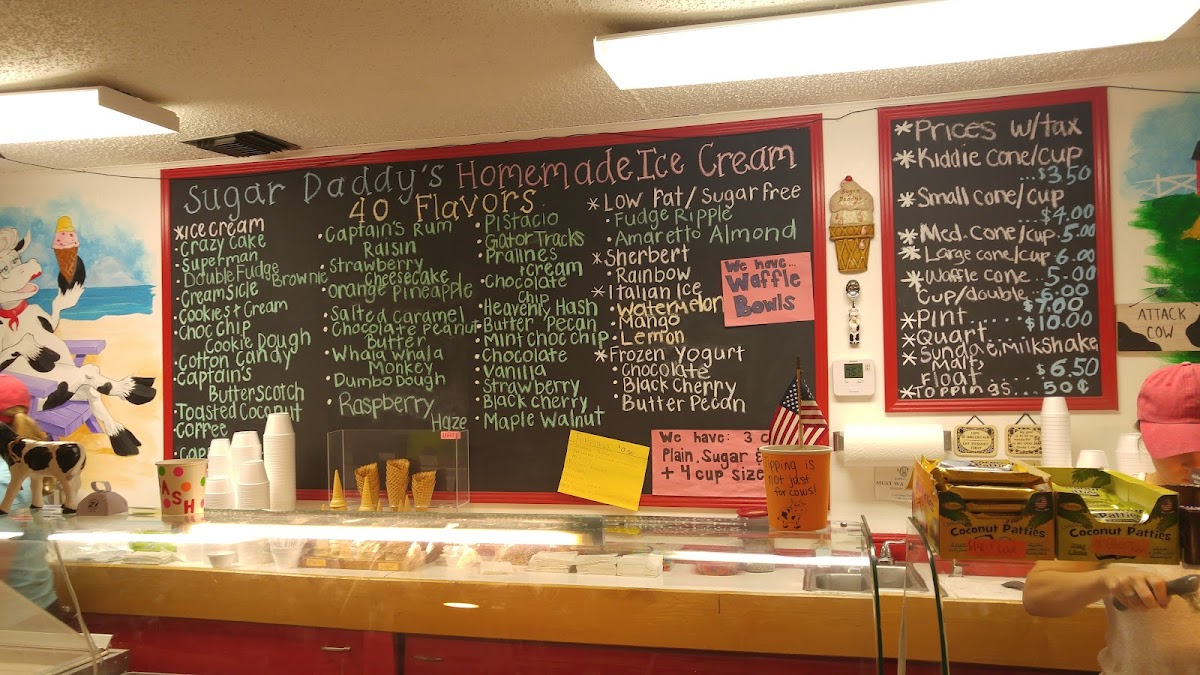 Sugar Daddy's Homemade Ice Cream
40 Flavors
*Ice cream
Crazy Cake
Superman
Double Fudge Brownie
Creamsicle
Cookies + Cream
Choc Chip
Cookie Dough
Cotton Candy
Captain's
Butterscotch
Toasted Coconut
Coffee
Captain's Rum
Raisin
Strawberry
Cheesecake
Orange Pineapple
Salted Caramel
Chocolate Peanut
Butter
Whala Whala
Monkey
Dumbo Dough
Raspberry
Haze
Pistacio
Gator Tracks
Pralines
+ cream
Chocolate
Chip
Heavenly Hash
Butter Pecan
Mint Choc Chip
Chocolate
Vanilla
Strawberry
Black Cherry
Maple Walnut
*Low Fat/Sugar free
Fudge Ripple
Amaretto Almond
*Sherbert
Rainbow
*Italian Ice
Watermelon
Mango
Lemon
*Frozen Yogurt
Chocolate
Black Cherry
Butter Pecan
We have...
Waffle
Bowls
We have: 3
Plain, Sugar &
+ 4 cup size
*Prices w/tax
*Kiddie cone/cup
...$3.50
*Small cone/cup
...$4.00
*Med. cone/cup 5.00
*Large cone/cup 6.00
*Waffle cone. 5.00
Cup/double. $6.00
*Pint.... $7.00
*Quart.... $10.00
*Sundae, Milkshake
Malt,
Float... $6.50
*Toppings... 50¢
Sugar
Daddy's
ATTACK
COW
ASH
pping is
not just
for cows!
Coconut Patties
Coconut Patties